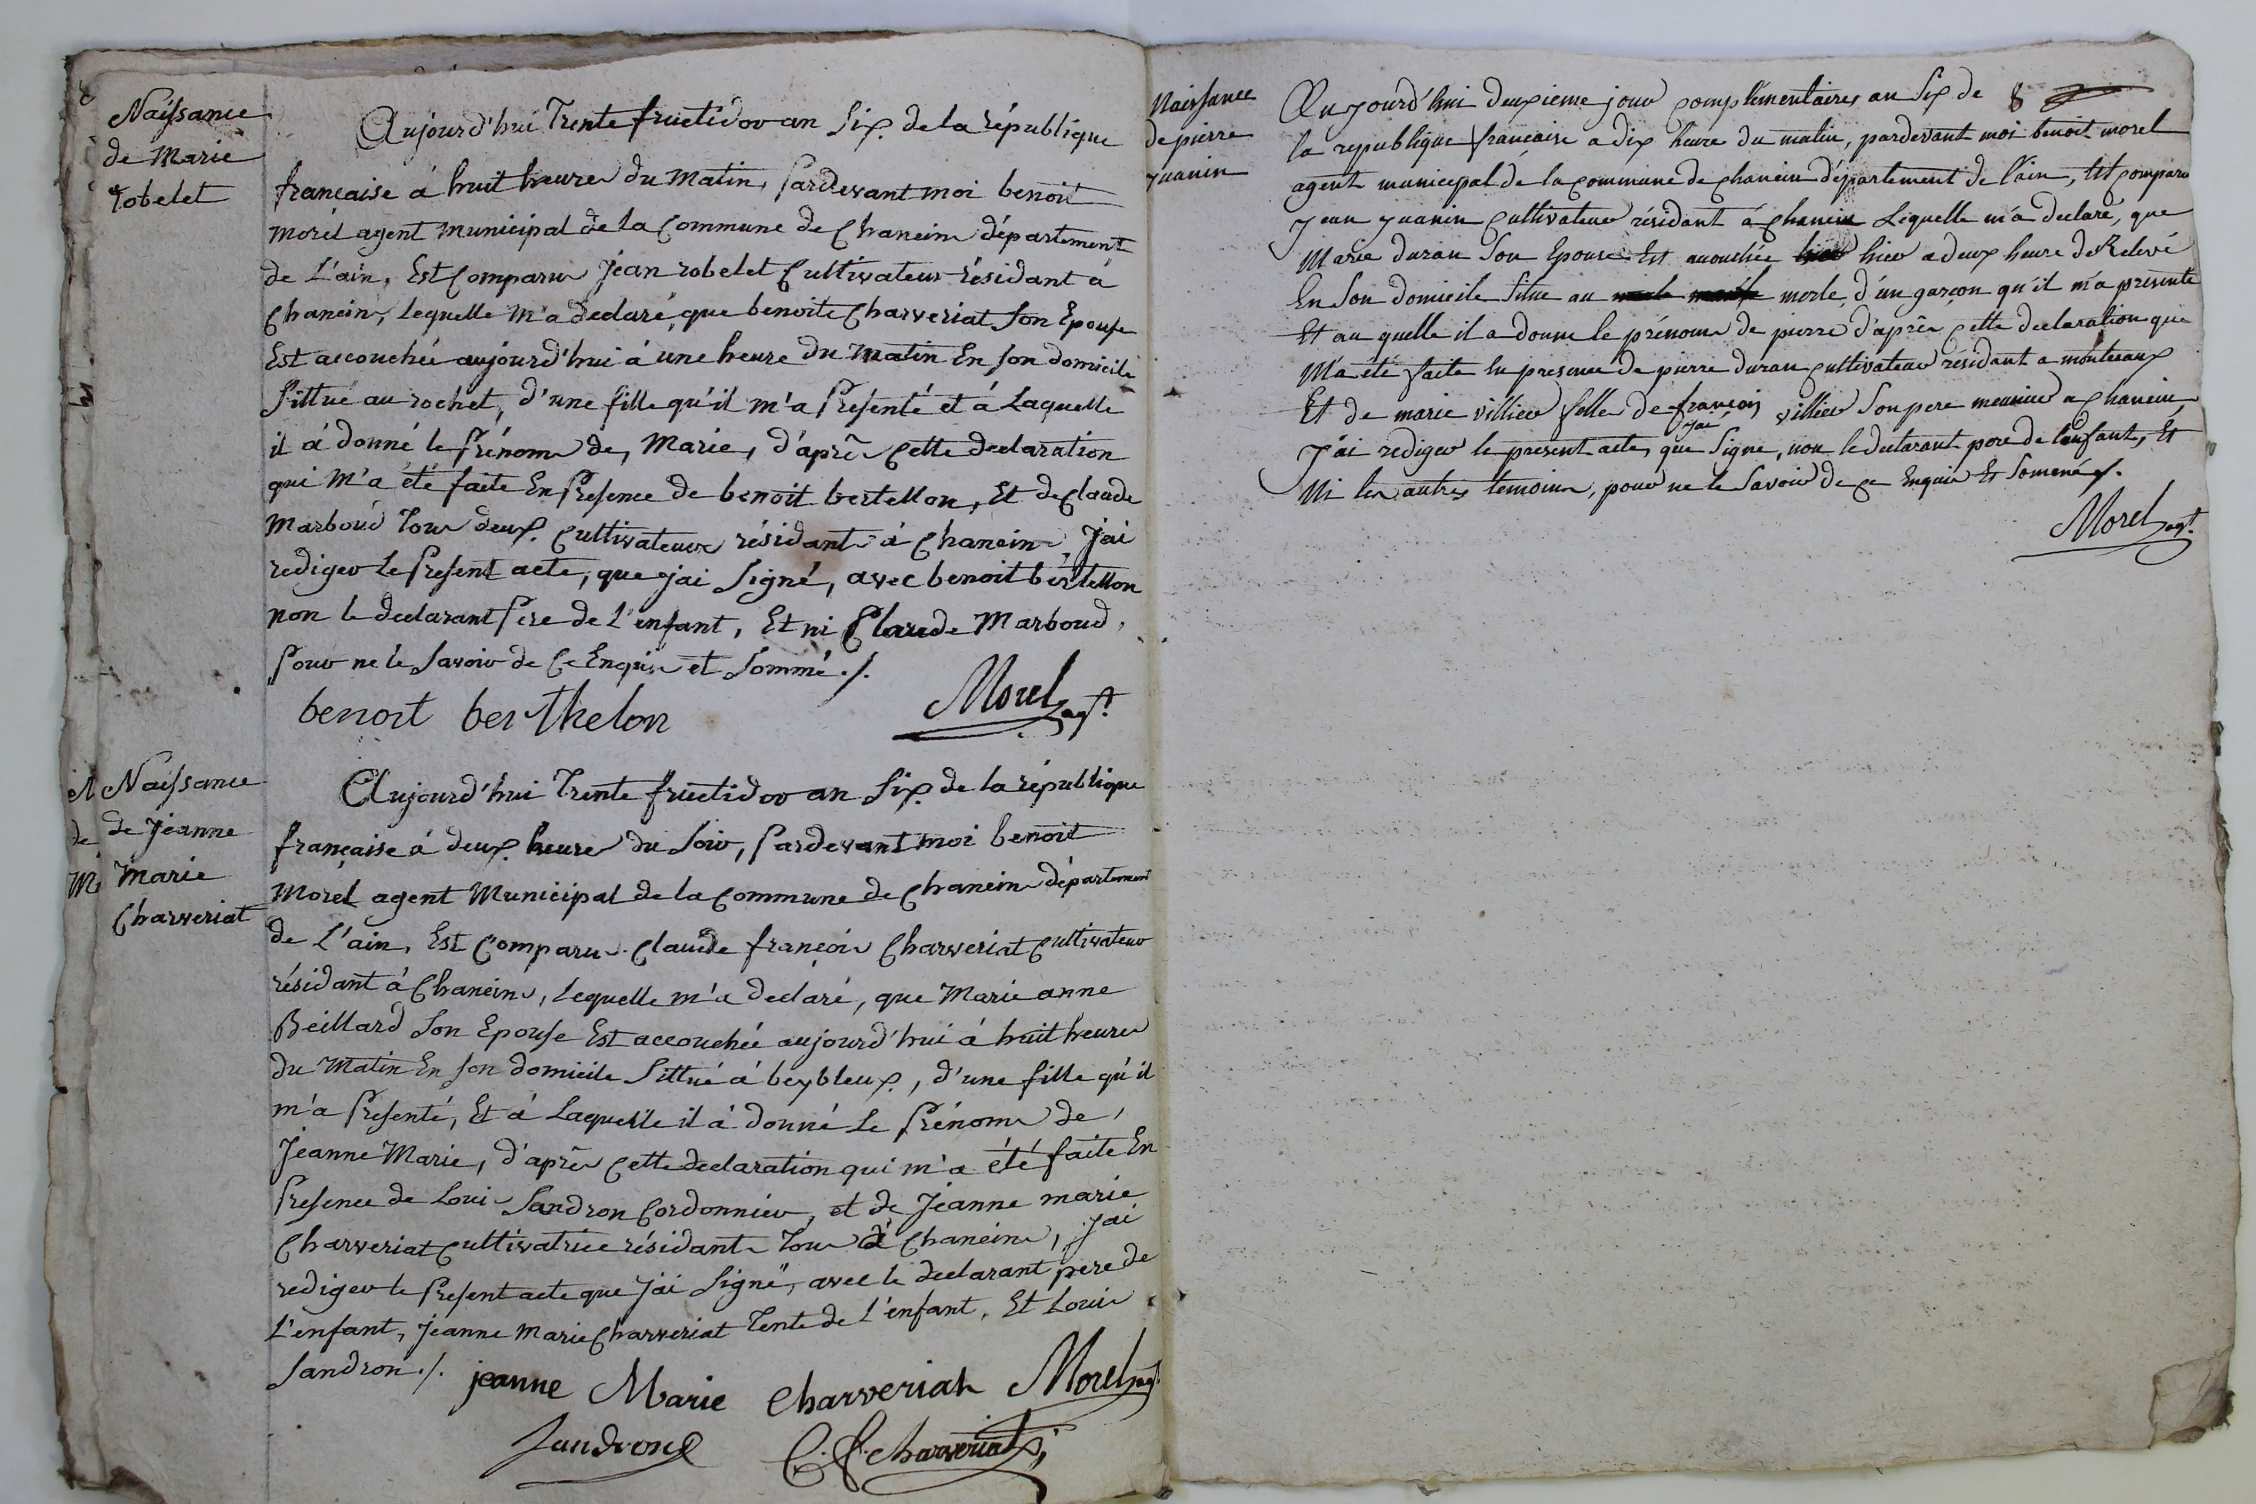 Naissance
de Marie
robelet
Aujourd'hui Trente fructidor an Six de la république
française à huit heures du Matin, pardevant moi benoit
Morel agent Municipal de la Commune de Chaneins département
de L'ain, Est Comparu Jean robelet Cultivateur résidant à
Chaneins, Lequelle M'a declaré, que benoite Charveriat Son Epouse
Est accouchée aujourd'hui à une heure du Matin En Son domicile
Sittué au rochet, d'une fille qu'il m'a Presenté et à Laquelle
il à donné le Prénom de, Marie, d'après Cette declaration
qui M'a été faite En Presence de benoit bertellon, Et de Claude
Marboud Tous deux Cultivateurs résidants à Chaneins, J'ai
rediger Le Present acte, que j'ai Signé, avec benoit bertellon
non le declarant Pere de L'enfant, Et ni Claude Marboud,
Pour ne le Savoir de Ce Enquis et Sommé ./.
benoit berthelon Morel agt.
Naissance
de Jeanne
Marie
Charveriat
Aujourd'hui Trente fructidor an Six de la république
française à deux heures du Soir, Pardevant moi benoit
Morel agent Municipal de la Commune de Chaneins département
de L'ain, Est Comparu Claude françois Charveriat Cultivateur
résidant à Chaneins, Lequelle m'a declaré, que Marie anne
Beillard Son Epouse Est accouchée aujourd'hui à huit heures
du Matin En Son domicile Sittué à beybleux, d'une fille qu'il
m'a Presenté, Et à Laquelle il à donné Le Prénom de,
Jeanne Marie, d'après Cette declaration qui m'a été faite En
Presence de Louis Sandron Cordonnier, et de Jeanne marie
Charveriat Cultivatrice résidants Tous à Chaneins, J'ai
rediger le Present acte que J'ai Signé, avec le declarant pere de
L'enfant, Jeanne Marie Charveriat Tente de L'enfant, Et Louis
Sandron ./. jeanne Marie Charveriat Morel agt.
Sandron C. f. charveriat
Naissance
de pierre
Juanin
Aujourd'hui deuxieme jour complementaires an Six de 8
la republique française a dix heure du matin, pardevant moi benoit morel
agent municipal de la Commune de Chanein département de l'ain, Est Comparu
Jean Juanin Cultivateur résidant à Chanein Lequelle m'a declaré, que
Marie duran Son Epouse Est acouchée hier a deux heure de Relevé
En Son domicile Situe au merle, d'un garçon qu'il m'a presenté
Et au quelle il a donné le prénom de pierre d'après Cette declaration que
M'a été faite En presence de pierre duran Cultivateur résidant a montceaux
Et de marie villier fille de françois villier Son pere meunier a Chanein
J'ai rediger le present acte que j'ai Signé, non le declarant pere de l'enfant, Et
Ni les autres temoins, pour ne le Savoir de Ce Enquis Et Somené ./.
Morel agt.